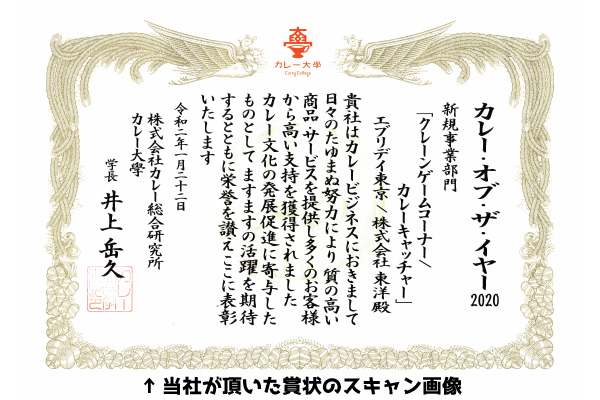 カレー大學
Curry College
カレー・オブ・ザ・イヤー2020
新規事業部門
「クレーンゲームコーナー／
カレーキャッチャー」
エブリデイ東京／株式会社 東洋殿
貴社はカレービジネスにおきまして
日々のたゆまぬ努力により 質の高い
商品・サービスを提供し多くのお客様
から高い支持を獲得されました
カレー文化の発展促進に寄与した
ものとして ますますの活躍を期待
するとともに栄誉を讃え ここに表彰
いたします
令和二年一月二十二日
株式会社カレー総合研究所
カレー大學
学長 井上 岳久
↑当社が頂いた賞状のスキャン画像